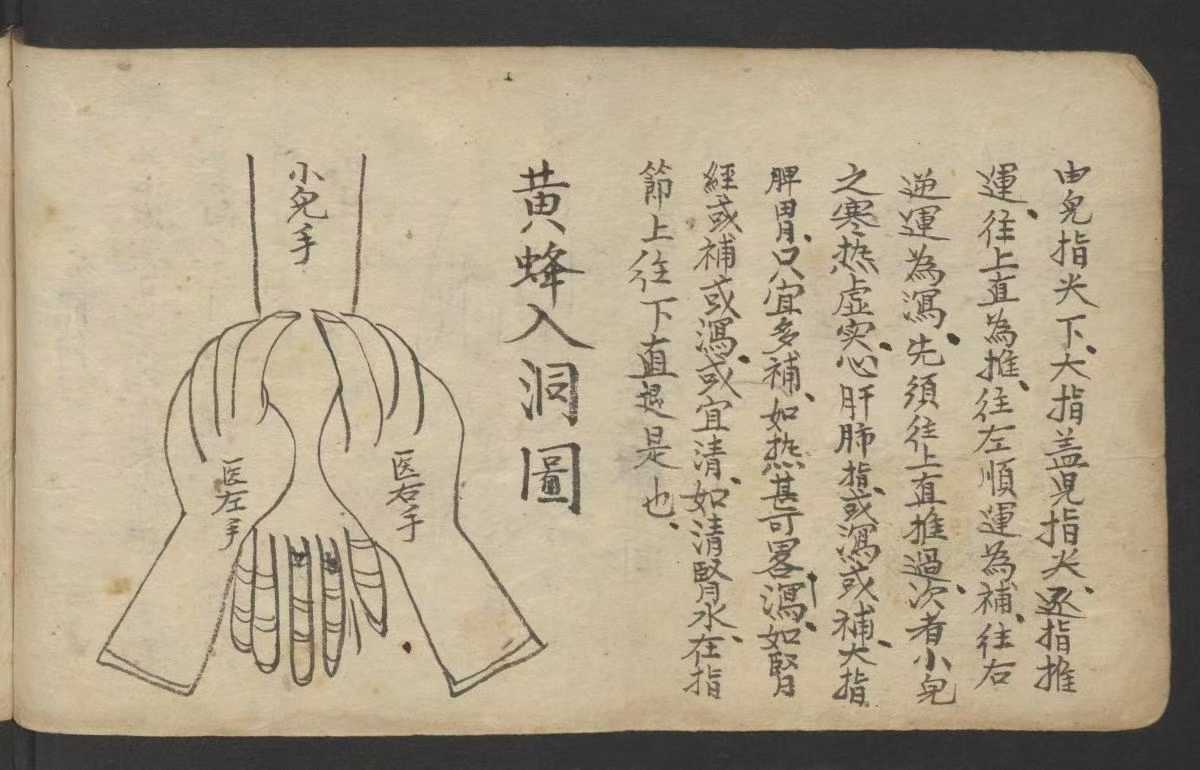 由兒指尖下、大指盖兒指尖、逐指推
運、往上直為推、往左順運為補、往右
逆運為瀉、先須往上直推過次者小兒
之寒热虚实、心肝肺指、或瀉或補、大指
脾胃、只宜多補、如热甚可畧瀉、如腎
經或補或瀉、或宜清、如清腎水、在指
節上往下直退是也、
黄蜂入洞圖
小兒手
医右手
医左手